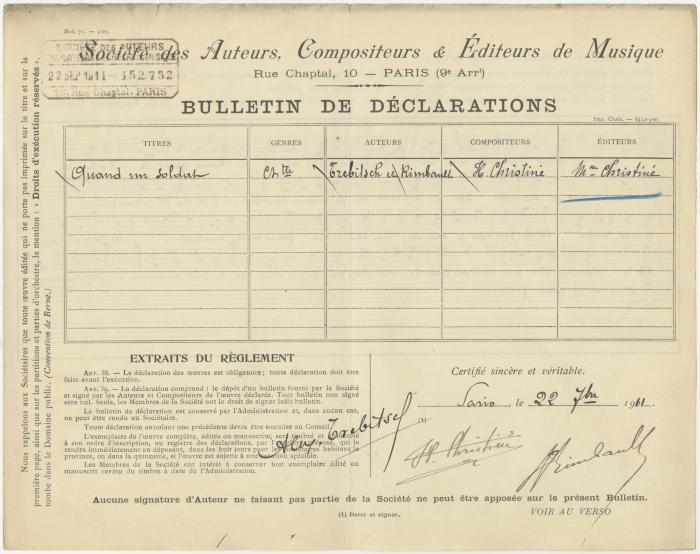 Mod. 71. — 5-07.
Société des Auteurs, Compositeurs & Éditeurs de Musique
SOCIÉTÉ DES AUTEURS
22 SEP 1911 — 152.732
10, Rue Chaptal, PARIS
Rue Chaptal, 10 — PARIS (9e Arrt)
BULLETIN DE DÉCLARATIONS
Imp. Chaix. — 8922-5-07.
TITRES GENRES AUTEURS COMPOSITEURS ÉDITEURS
Quand un soldat Chtte Trebitsch et Rimbault H. Christiné Mme Christiné
EXTRAITS DU RÈGLEMENT
ART. 38. — La déclaration des œuvres est obligatoire; toute déclaration doit être
faite avant l'exécution.
ART. 39. — La déclaration comprend : le dépôt d'un bulletin fourni par la Société
et signé par les Auteurs et Compositeurs de l'œuvre déclarée. Tout bulletin non signé
sera nul. Seuls, les Membres de la Société ont le droit de signer ledit bulletin.
Le bulletin est conservé par l'Administration et, dans aucun cas,
ne peut être rendu au Sociétaire.
Toute déclaration annulant une précédente devra être soumise au Conseil.
L'exemplaire de l'œuvre complète, édité ou manuscrit, sera timbré et
à son ordre d'inscription, au registre des déclarations, par qui
rendra immédiatement au déposant, dans les huit jours pour les habitant la
province, ou dans la quinzaine, si l'œuvre est sujette à une spéciale.
Les Membres de la Société ont intérêt à conserver tout exemplaire édité ou
manuscrit revêtu du timbre à date de l'Administration.
Certifié sincère et véritable.
Paris, le 22 7bre 1911
(1)
Trebitsch
H. Christiné
Rimbault
Aucune signature d'Auteur ne faisant pas partie de la Société ne peut être apposée sur le présent Bulletin.
(1) Dater et signer.
VOIR AU VERSO
Nous rappelons aux Sociétaires que toute œuvre éditée qui ne porte pas imprimée sur le titre et sur la
première page, ainsi que sur les partitions et parties d'orchestre, la mention : « Droits d'exécution réservés »,
tombe dans le Domaine public. (Convention de Berne.)